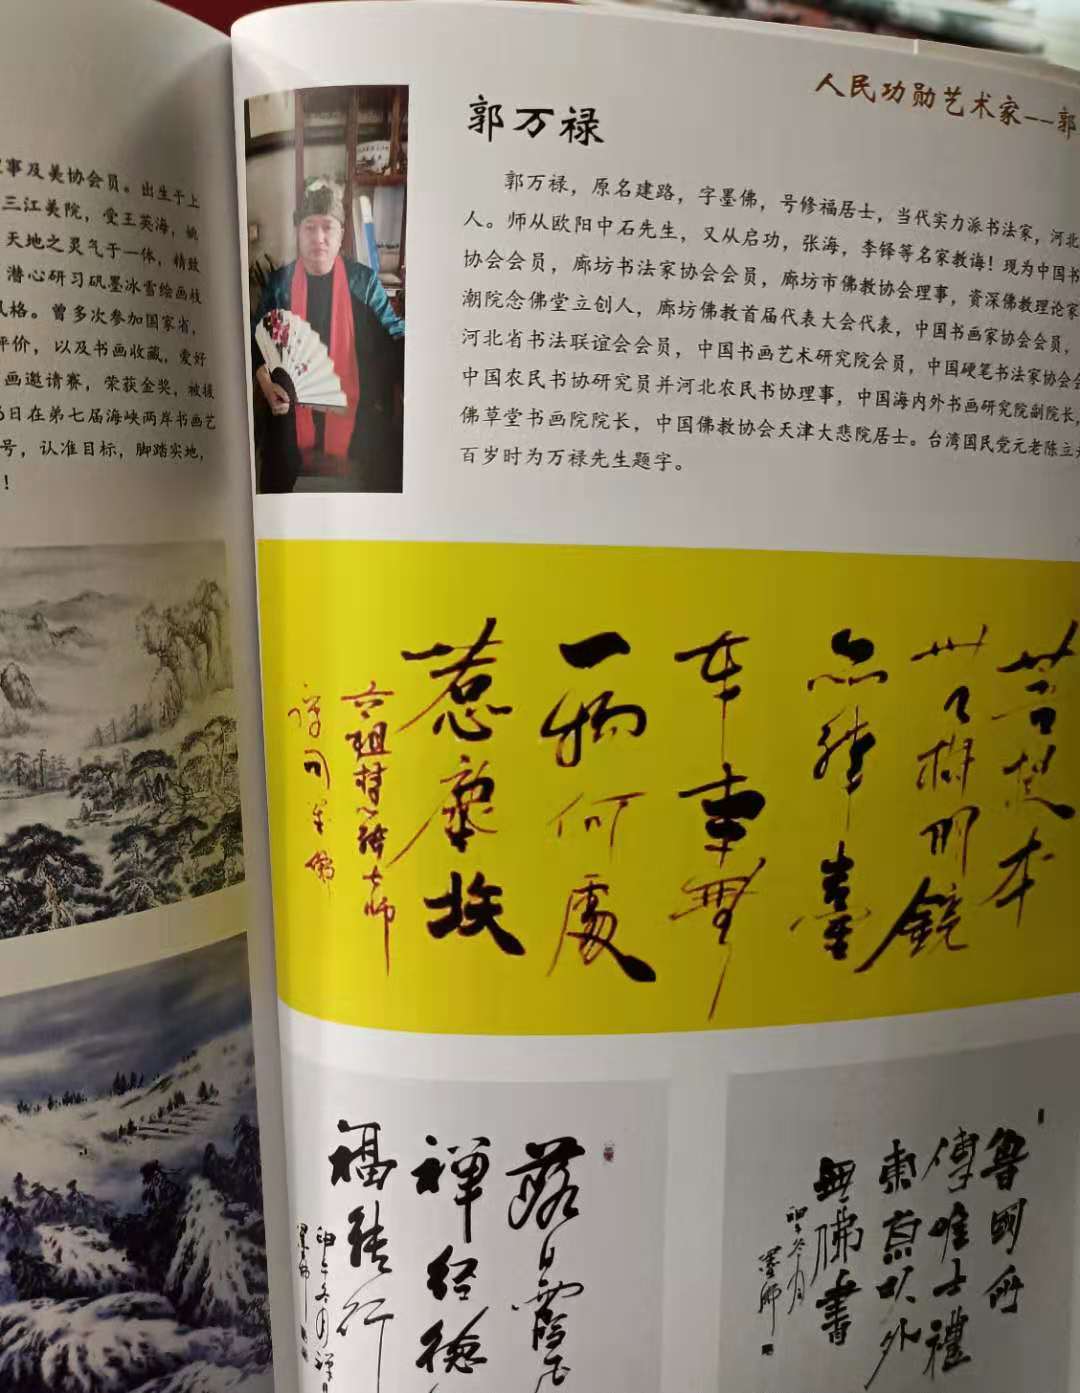 事及美协会员。出生于上
三江美院，受王英海，姚
天地之灵气于一体，精致
潜心研习矾墨冰雪绘画技
风格。曾多次参加国家省，
评价，以及书画收藏，爱好
画邀请赛，荣获金奖，被授
日在第七届海峡两岸书画艺
号，认准目标，脚踏实地，
！
人民功勋艺术家--郭
郭万禄
郭万禄，原名建路，字墨佛，号修福居士，当代实力派书法家，河北
人。师从欧阳中石先生，又从启功，张海，李铎等名家教诲！现为中国书
协会会员，廊坊书法家协会会员，廊坊市佛教协会理事，资深佛教理论家
潮院念佛堂立创人，廊坊佛教首届代表大会代表，中国书画家协会会员，
河北省书法联谊会会员，中国书画艺术研究院会员，中国硬笔书法家协会会
中国农民书协研究员并河北农民书协理事，中国海内外书画研究院副院长，
佛草堂书画院院长，中国佛教协会天津大悲院居士。台湾国民党元老陈立夫
百岁时为万禄先生题字。
菩提本
樹明鏡
臺
本來無
一物何處
惹塵埃
六祖慧能大师
落日
禪经德
福能行
魯國
傳唯士禮
東京以外
無佛書